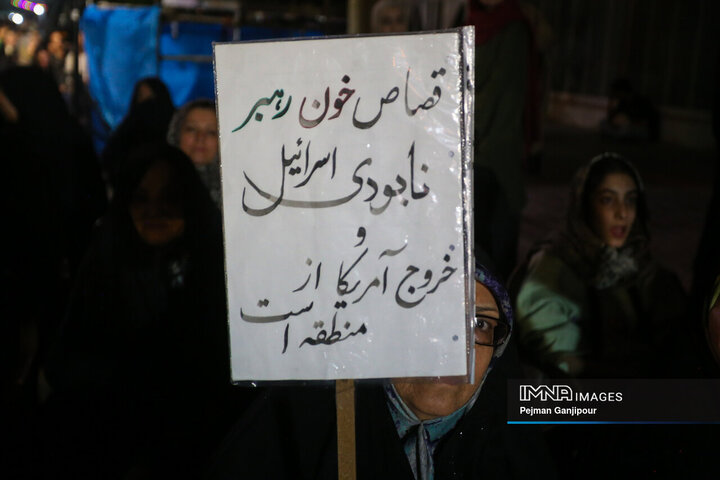 قصاص خون رهبر
نابودی اسرائیل
و
خروج آمریکا از
منطقه است
IMNA IMAGES
Pejman Ganjipour